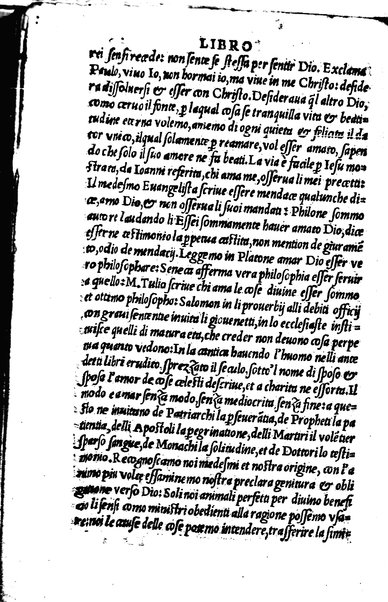 LIBRO
rei sensi recede: non sente se stessa per sentir Dio. Exclama
Paulo, viuo Io, non hormai io, ma viue in me Christo: deside
ra dissoluersi & esser con Christo. Desideraua q̃l altro Dio,
come ceruo il fonte, p laqual cosa se tranquilla vita & beati
tudine eterna volemo, amemo di ogni quieta & felicita il da
tor vnico, ilqual solamente p reamare, vol esser amato, sapen
do che solo il suo amere ne fa beati. La via è facile p Iesu mo
strata, da Ioanni referita, chi ama me, osserua li mei precetti:
Il medesmo Euangelista scriue essere mendace qualunche di
ce, amo Dio, & non osserua li suoi mandati: Philone sommo
autore laudando li Essei sommamente hauer amato Dio, dice
esserne testimonio la ppetua castita, non mention de giuramẽ
to, odio de mendacij. Leggemo in Platone amar Dio esser ve
ro philosophare: Seneca afferma vera philosophia esser seruir
a quello: M. Tulio scriue chi ama le cose diuine esser sommo
et ottimo philosopho: Salomon in li prouerbij alli debiti officij
con graui sententie inuita li giouenetti, in lo ecclesiaste insti
tuisce quelli di matura eta, che creder non deuono cosa perpe
tua quanto vedono: In la cantica hauendo l'huomo nelli ante
detti libri erudito, sprezzato il seculo, sotto 'l nome di sposo &
sposa l'amor de cose celesti descriue, et a charita ne esforta. Il
modo e amar senza modo, senza mediocrita senza fine: a que
sto ne inuitano de Patriarchi la pseuerãtia, de Propheti la pa
tientia, delli Apostoli la pegrinatione, delli Martiri il volẽtier
sparso sangue, de Monachi la solitudine, et de Dottori lo testi-
monio. Recognoscamo noi medesmi et nostra origine, con l'a
nimo piu volte essaminemo nostra preclara genitura & obli
gatione verso Dio: Soli noi animali perfetti per diuino benefi
li sensi como ministri obedienti alla ragione possemo vsa-
re; noi le cause delle cose potemo intendere, trasferire la simi-